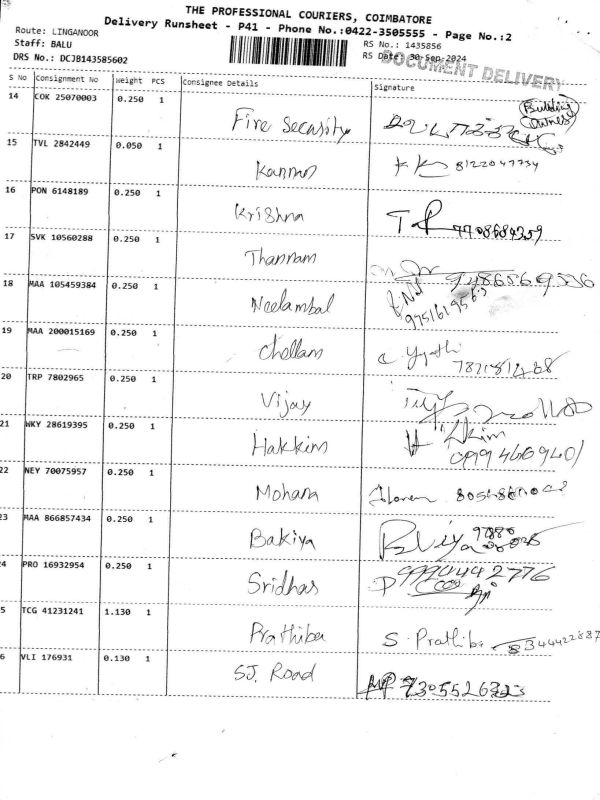 THE PROFESSIONAL COURIERS, COIMBATORE
Delivery Runsheet - P41 - Phone No.:0422-3505555 - Page No.:2
Route: LINGANOOR
Staff: BALU
DRS No.: DCJB143585602
RS No.: 1435856
RS Date: 30-Sep-2024
DOCUMENT DELIVERY
S No Consignment No Weight PCS Consignee Details Signature
14 COK 25070003 0.250 1 Fire Secasity
Building
Owner
15 TVL 2842449 0.050 1 Kannan 8122047734
16 PON 6148189 0.250 1 Krishna 7708684359
17 SVK 10560288 0.250 1 Thannam 9486569556
18 MAA 105459384 0.250 1 Neelambal
19 MAA 200015169 0.250 1 Chellam
20 TRP 7802965 0.250 1 Vijay
21 WKY 28619395 0.250 1 Hakkim
22 NEY 70075957 0.250 1 Mohana
23 MAA 866857434 0.250 1 Bakiya
24 PRO 16932954 0.250 1 Sridhas 9990442776
25 TCG 41231241 1.130 1 Prathiba S. Prathiba 8344422887
26 VLI 176931 0.130 1 SJ. Road 7305526323